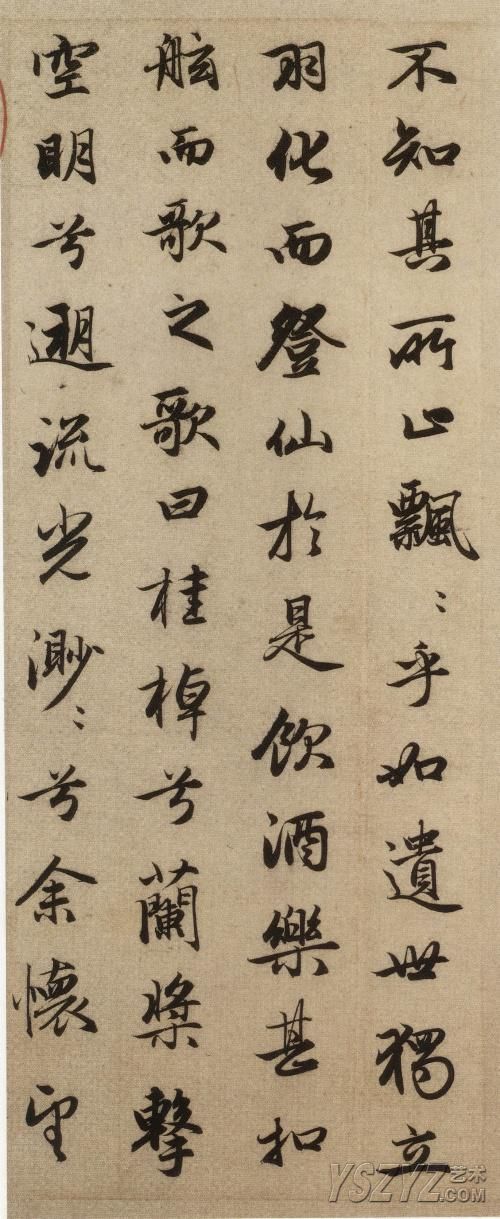 不知其所止飄〻乎如遺世獨立
羽化而登仙於是飲酒樂甚扣
舷而歌之歌曰桂棹兮蘭槳擊
空明兮遡流光渺〻兮余懷望
YSZYZ艺术.COM